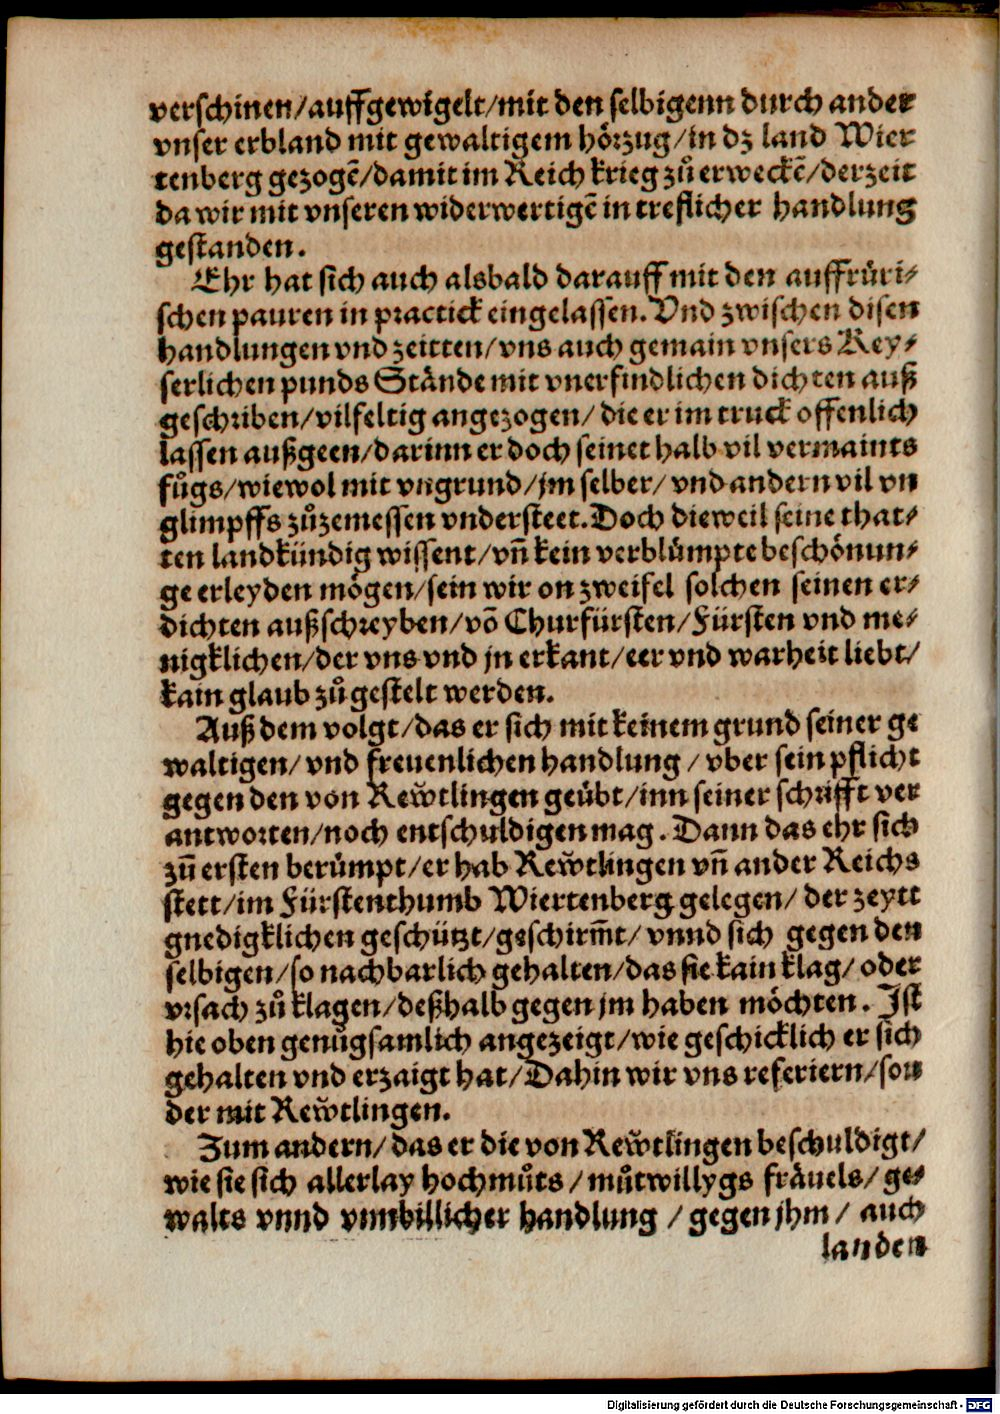 verschinen/auffgewigelt/mit den selbigenn durch ander
vnser erbland mit gewaltigem hörzug/in dz land Wier
tenberg gezogē/damit im Reich krieg zů erweckē/derzeit
da wir mit vnseren widerwertigē in treflicher handlung
gestanden.
Ehr hat sich auch alsbald darauff mit den auffrůri⸗
schen pauren in practick eingelassen. Vnd zwischen disen
handlungen vnd zeitten/vns auch gemain vnsers Key⸗
serlichen punds Stände mit vnerfindlichen dichten auß
geschriben/vilfeltig angezogen/die er im truck offenlich
lassen außgeen/darinn er doch seinet halb vil vermaints
fůgs/wiewol mit vngrund/jm selber/vnd andern vil vn
glimpffs zůzemessen vndersteet. Doch dieweil seine that⸗
ten landkündig wissent/vn̄ kein verblůmpte beschönun⸗
ge erleyden mögen/sein wir on zweifel solchen seinen er⸗
dichten außschreyben/vō Churfürsten/Fürsten vnd me⸗
nigklichen/der vns vnd jn erkant/eer vnd warheit liebt/
kain glaub zů gestelt werden.
Auß dem volgt/das er sich mit keinem grund seiner ge
waltigen/vnd freuenlichen handlung/vber sein pflicht
gegen den von Rew̌tlingen geübt/inn seiner schrifft ver
antworten/noch entschuldigen mag. Dann das ehr sich
zū ersten berůmpt/er hab Rew̌tlingen vn̄ ander Reichs
stett/im Fürstenthumb Wiertenberg gelegen/der zeytt
gnedigklichen geschützt/geschirm̄t/vnnd sich gegen den
selbigen/so nachbarlich gehalten/das sie kain klag/oder
vrsach zů klagen/deßhalb gegen jm haben möchten. Ist
hie oben genůgsamlich angezeigt/wie geschicklich er sich
gehalten vnd erzaigt hat/Dahin wir vns referiern/son
der mit Rew̌tlingen.
Zum andern/das er die von Rew̌tlingen beschuldigt/
wie sie sich allerlay hochmůts/můtwillygs fräuels/ge⸗
walts vnnd vnnbillicher handlung/gegen jhm/auch
landen
Digitalisierung gefördert durch die Deutsche Forschungsgemeinschaft - DFG